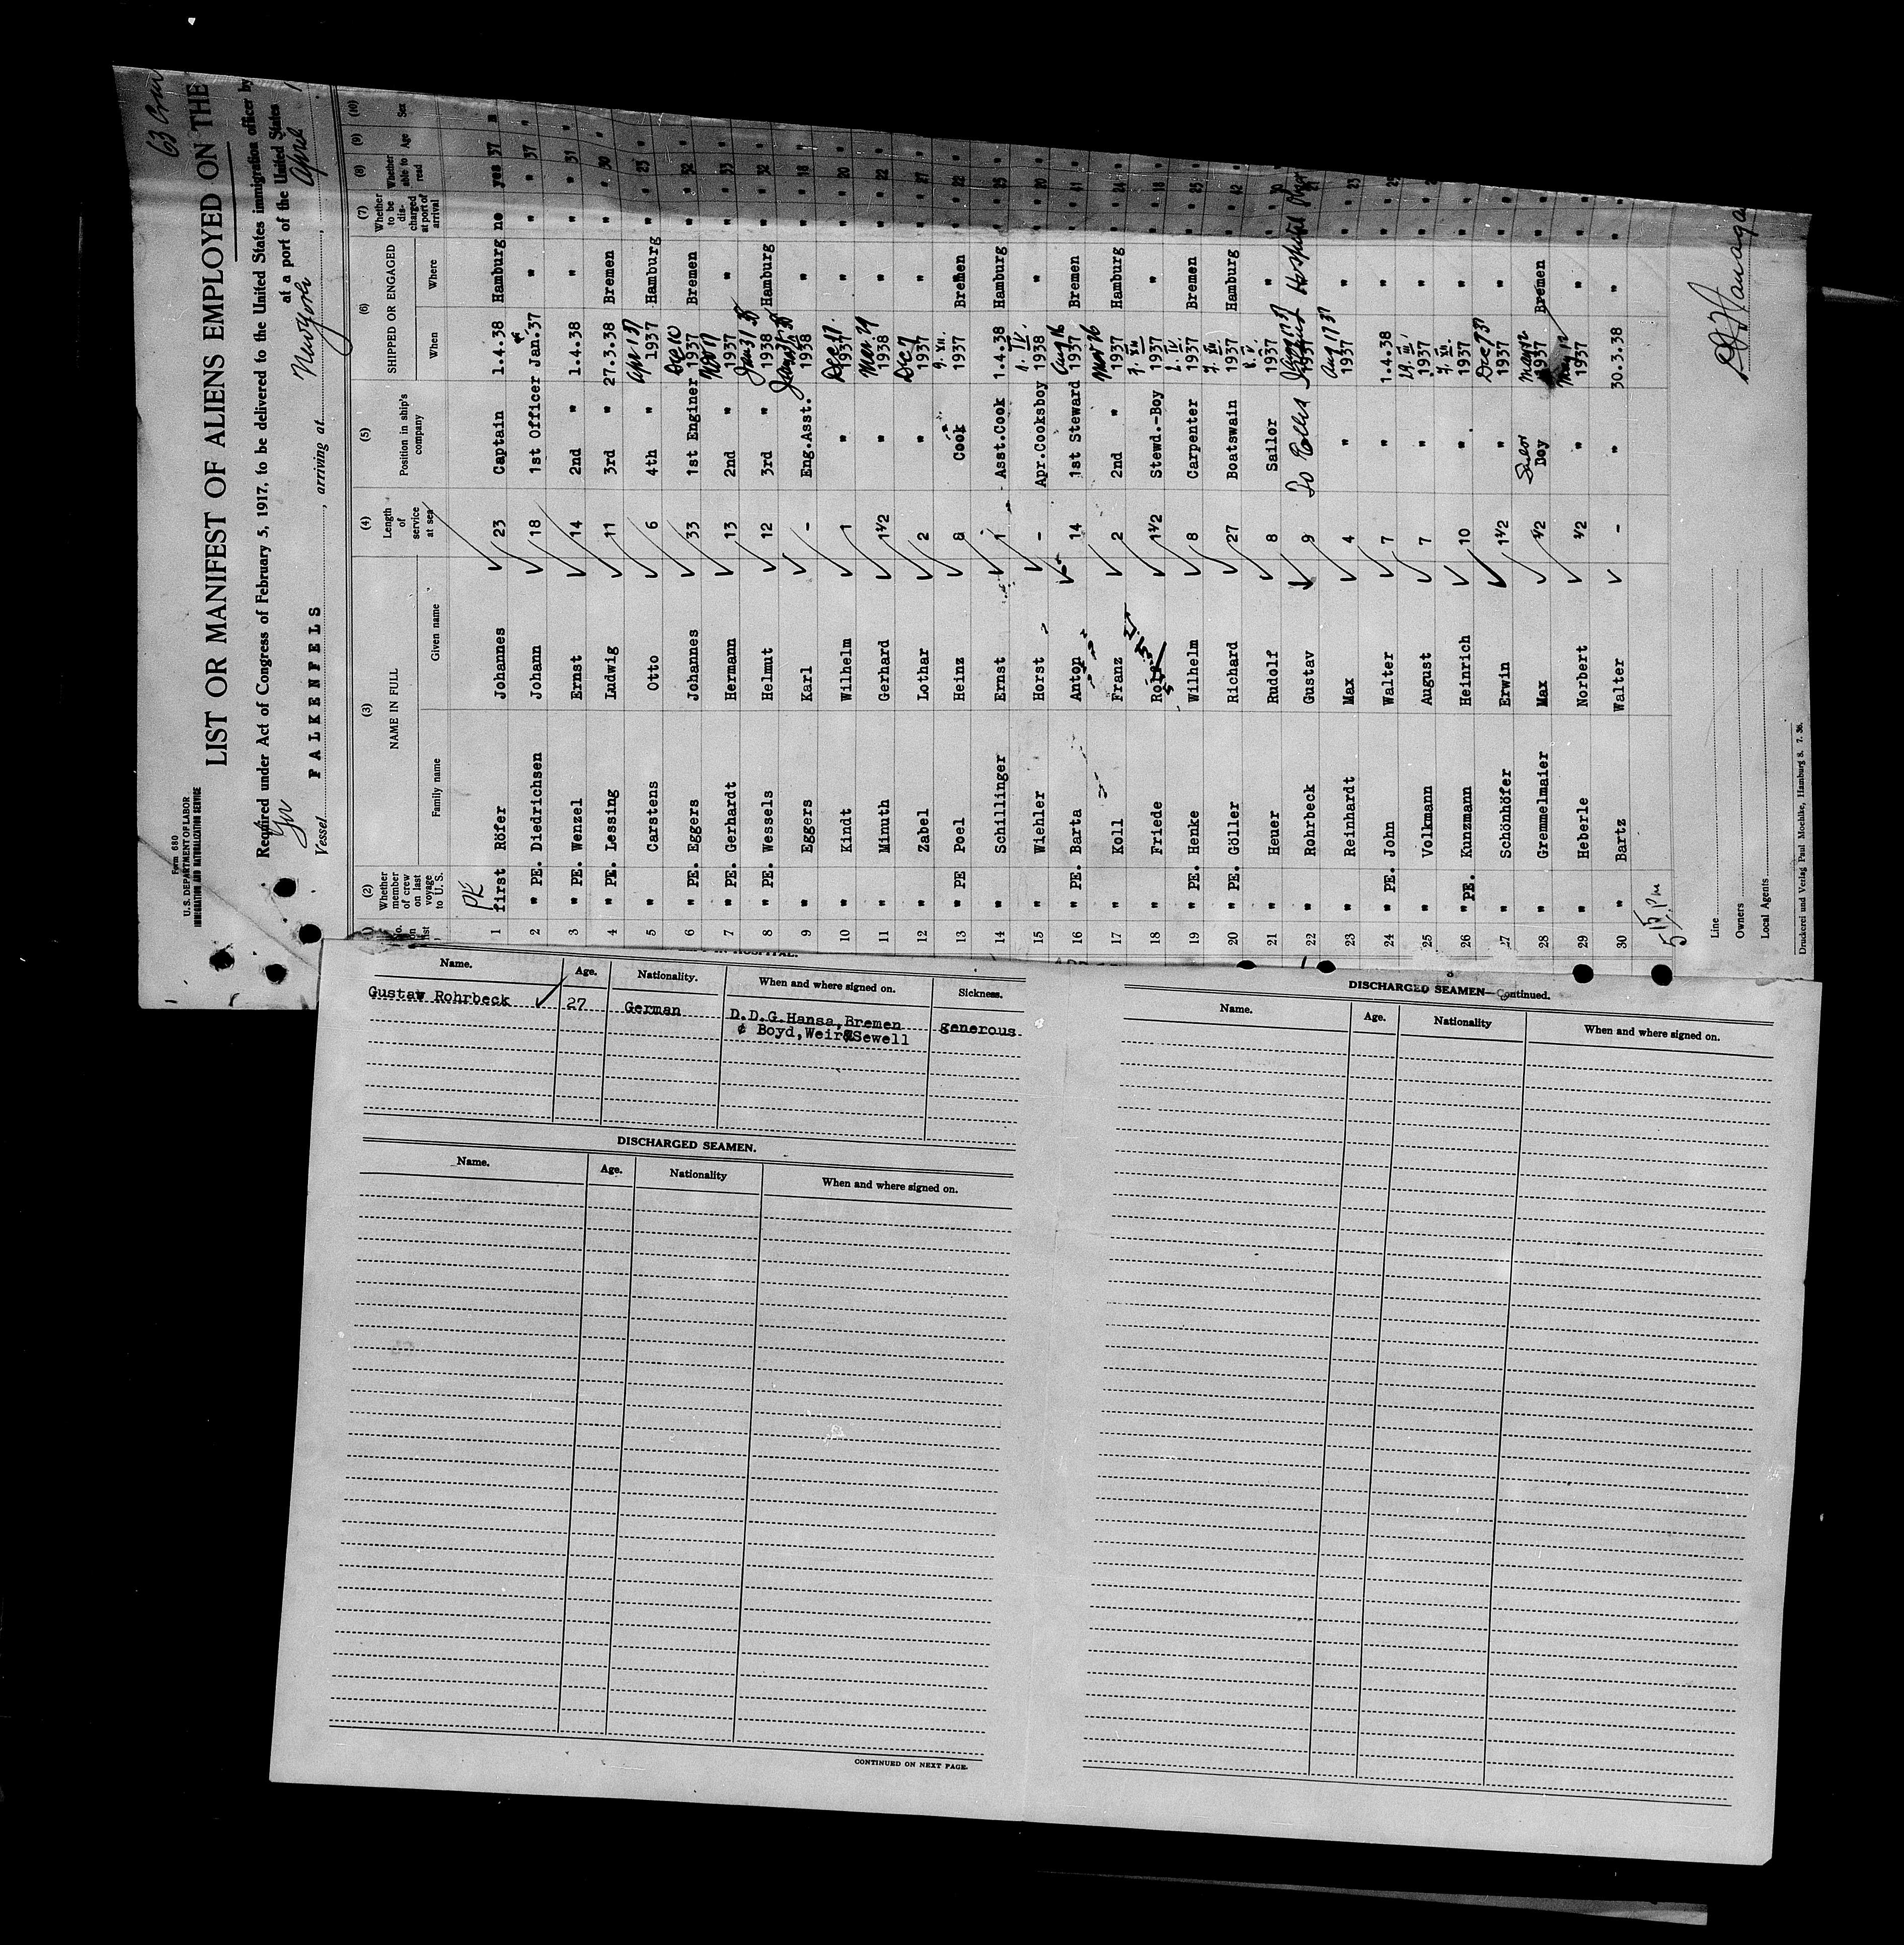 63 Crew
Form 680
U. S. DEPARTMENT OF LABOR
IMMIGRATION AND NATURALIZATION SERVICE
LIST OR MANIFEST OF ALIENS EMPLOYED ON THE
Required under Act of Congress of February 5, 1917, to be delivered to the United States immigration officer by
at a port of the United States
Vessel FALKENFELS, arriving at New York, April 1
(2) (3) (4) (5) (6) (7) (8) (9) (10)
No. on list Whether member of crew on last voyage to U. S. NAME IN FULL Family name Given name Length of service at sea Position in ship's company SHIPPED OR ENGAGED When Where Whether to be discharged at port of arrival Whether able to read Age Sex
PE
1 first Röfer Johannes 23 Captain 1.4.38 Hamburg no yes 37 m
2 " PE. Diedrichsen Johann 18 1st Officer Jan.37 " " " 37 "
3 " PE. Wenzel Ernst 14 2nd " 1.4.38 " " " 31 "
4 " PE. Lessing Ludwig 11 3rd " 27.3.38 Bremen " " 30 "
5 " Carstens Otto 6 4th " Apr-1 37 1937 Hamburg " " 23 "
6 " PE. Eggers Johannes 33 1st Enginer Dec 10 1937 Bremen " " 52 "
7 " PE. Gerhardt Hermann 13 2nd " Nov 17 1937 " " " 33 "
8 " PE. Wessels Helmut 12 3rd " Jan 31 38 1938 Hamburg " " 32 "
9 " Eggers Karl - Eng.Asst. 1938 " " " 18 "
10 " Kindt Wilhelm 1 " Dec 17 1937 " " " 20 "
11 " Minuth Gerhard 1½ " Mar 29 1938 " " " 22 "
12 " Zabel Lothar 2 " Dec 7 1937 " " " 27 "
13 " PE Poel Heinz 8 Cook 9. XII. 1937 Bremen " " 22 "
14 " Schillinger Ernst 1 Asst.Cook 1.4.38 Hamburg " " 25 "
15 " Wiehler Horst - Apr.Cooksboy 1. IV. 1938 " " " 20 "
16 " PE. Barta Anton 14 1st Steward Aug 16 1937 Bremen " " 41 "
17 " Koll Franz 2 2nd " 1937 Hamburg " " 24 "
18 " Friede Rolf 1½ Stewd.-Boy 7. XII 1937 " " " 18 "
19 " PE. Henke Wilhelm 8 Carpenter 2. IV. 1937 Bremen " " 25 "
20 " PE. Göller Richard 27 Boatswain 7. XII 1937 Hamburg " " 42 "
21 " Heuer Rudolf 8 Sailor 8. V. 1937 " " " 30 "
22 " Rohrbeck Gustav 9 To Ellis Island Hospital
23 " Reinhardt Max 4 " Aug 17 37 1937 " " " 23
24 " PE. John Walter 7 " 1.4.38 " " "
25 " Volkmann August 7 " 19. III. 1937 " " "
26 " PE. Kunzmann Heinrich 10 " 7. XII. 1937 " " "
27 " Schönhöfer Erwin 1½ " Dec 7 37 1937 " " "
28 " Gremmelmaier Max ½ Sailor Boy 1937 Bremen " "
29 " Heberle Norbert ½ " 1937 " " "
30 " Bartz Walter - " 30.3.38 " " "
5 15 Pm
Line
Owners
Local Agents
Druckerei und Verlag Paul Moehlke, Hamburg 8. 7. 36.
HOSPITAL.
Name. Age. Nationality. When and where signed on. Sickness.
Gustav Rohrbeck 27 German D.D.G.Hansa,Bremen generous
¢ Boyd,Weir&Sewell
DISCHARGED SEAMEN.
Name. Age. Nationality When and where signed on.
CONTINUED ON NEXT PAGE.
DISCHARGED SEAMEN—Continued.
Name. Age. Nationality When and where signed on.